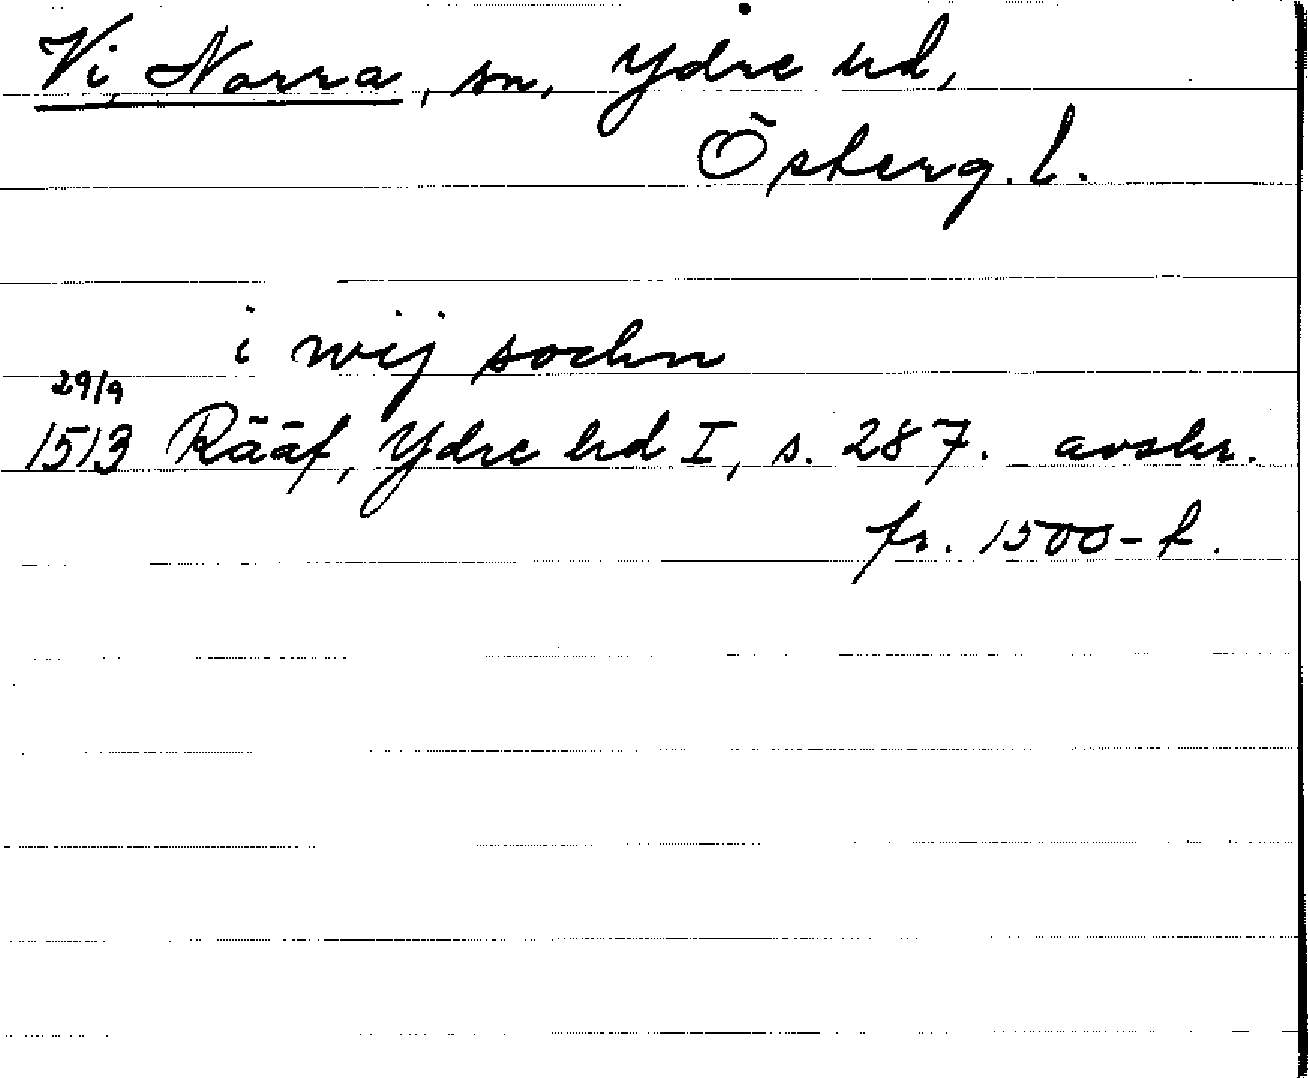 Vi, Norra, sn, Ydre hd,
Österg. l.
i wij sochn
29/9
1513 Rääf, Ydre hd I, s. 287. avskr.
fr. 1500-t.